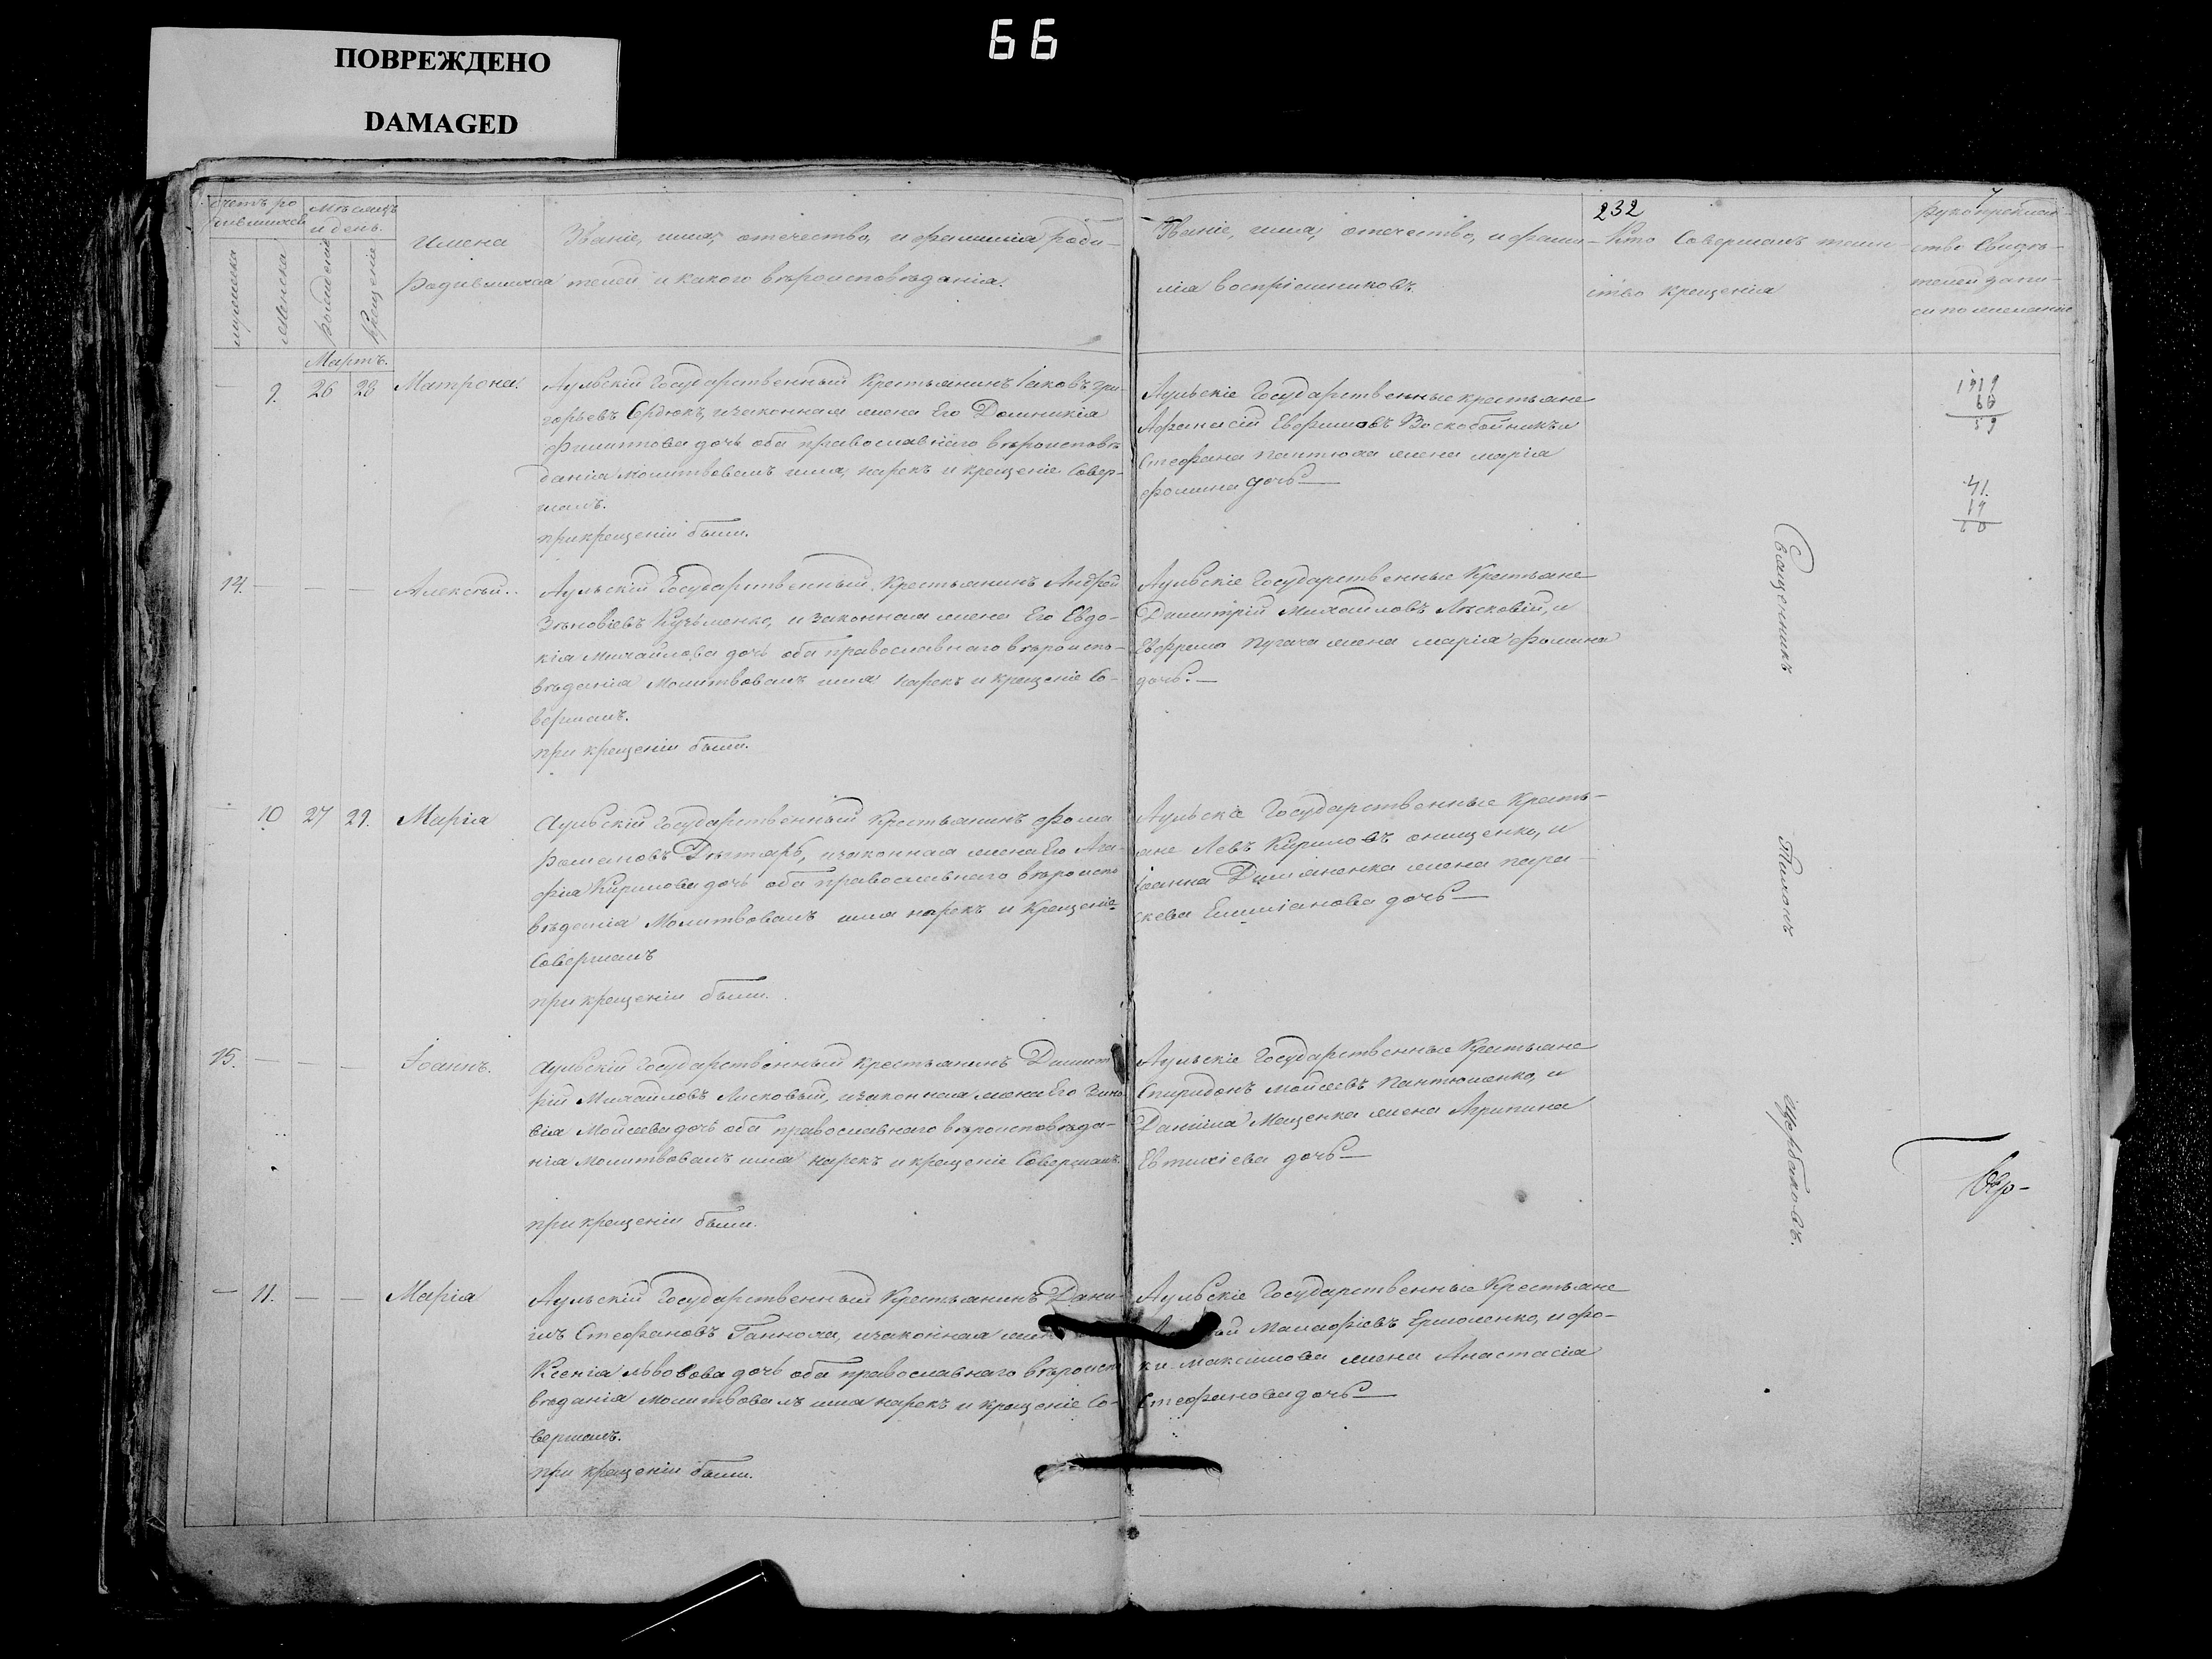 66
ПОВРЕЖДЕНО
DAMAGED
счетъ ро
дившихся
мужеска
женска
мѣсяцъ
и день.
рожденія
крещенія
Имена
родившихся
Званіе, имя, отечество, и фамилія роди-
телей и какого вѣроисповѣданія.
Званіе, имя, отечество, и фами-
лія воспріемниковъ
232
Кто совершалъ таин-
ство крещенія
Рукоприклад-
ство свидѣ-
телей запи-
си по желанію
Мартъ.
9. 26 28 Матрона.
Аульскій Государственный Крестьянинъ Іаковъ Гри-
горьевъ Сердюкъ, изаконная жена Его Домникія
Филиппова дочь оба православнаго вѣроисповѣ
данія молитвовалъ имя, нарекъ и крещеніе Совер-
шалъ.
при крещеніи были.
Аульскіе Государственные крестьяне
Афанасій Евфимовъ Воскобойникъ и
Стефана Пантюха жена марія
фомина дочь
1919
60
59
41.
19
60
14. Алексѣй.
Аульскій Государственный Крестьянинъ Андрей
Зѣновіевъ Кузьменко, и законная жена Его Евдо-
кія Михайлова дочь оба православнаго вѣроиспо-
вѣданія Молитвовалъ имя нарекъ и крещеніе Со-
вершалъ.
при крещеніи были.
Аульскіе Государственные Крестьяне
Димитрій Михайловъ Лѣсковій, и
Евфрема Пугача жена марія фомина
дочь.
10 27 29. Марія
Аульскій Государственный Крестьянинъ фома
Романовъ Дѣхтярь, изаконная жена Его Ага-
фія Кирилова дочь оба православнаго вѣроиспо
вѣденія Молитвовалъ имя нарекъ и Крещеніе
Совершалъ
при крещеніи были.
Аульскіе Государственные Кресть-
яне Левъ Кириловъ онищенко, и
Іоанна Демяненка жена пара-
скева Емиліанова дочь
15. Іоаннъ.
Аульскій Государственный крестьянинъ Димит
рій Михайловъ Лисковый, изаконная жена Его Зино
вія Мойсеева дочь оба православнаго вѣроисповѣда-
нія молитвовалъ имя нарекъ и крещеніе Совершалъ.
при крещеніи были.
Аульскіе Государственные Крестьяне
Спиридонъ Мойсеевъ Пантюшенко, и
Даніила Мащенка жена Агрипина
Евтихіева дочь
11. Марія
Аульскій Государственный Крестьянинъ Дани-
илъ Стефановъ Ганноха, изаконная жена
Ксенія львовова дочь оба православнаго вѣроиспо
вѣданія молитвовалъ имя нарекъ и крещеніе Со-
вершалъ.
при крещеніи были.
Аульскіе Государственные Крестьяне
Мамфіевъ Ермоленко, и фо-
ки Максимова жена Анастасія
Стефанова дочь
Священникъ
Тихонъ
Щербаковъ.